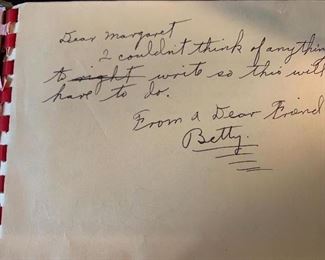 Dear Margaret
I couldn't think of anythin
to right write so this will
have to do.
From a Dear Friend
Betty.